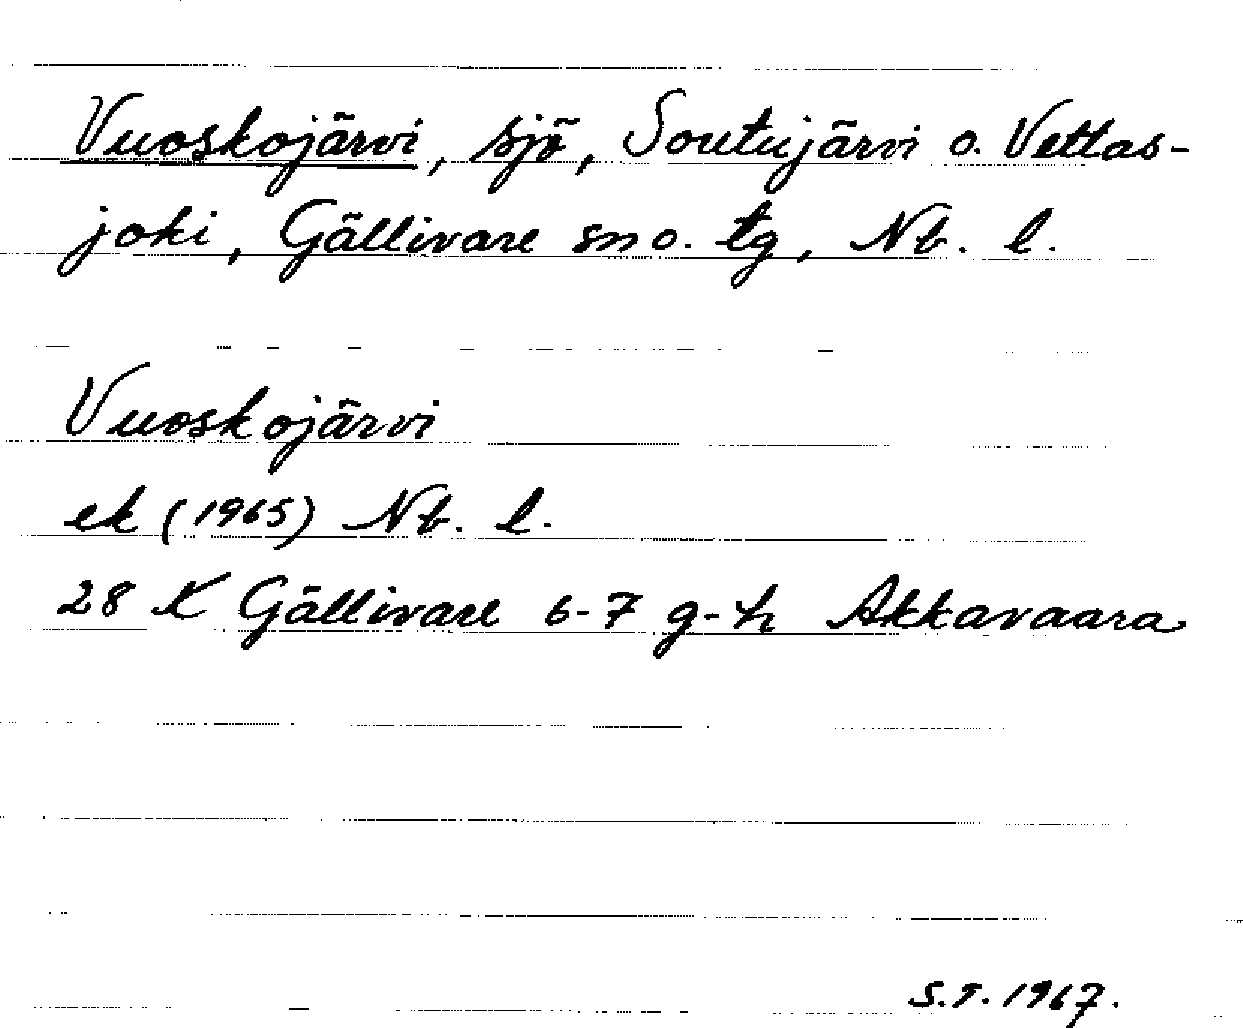 Vuoskojärvi, sjö, Soutujärvi o. Vettas-
joki, Gällivare sn o. tg, Nb. l.
Vuoskojärvi
ek (1965) Nb. l.
28 K Gällivare 6-7 g-h Akkavaara
S.T. 1967.